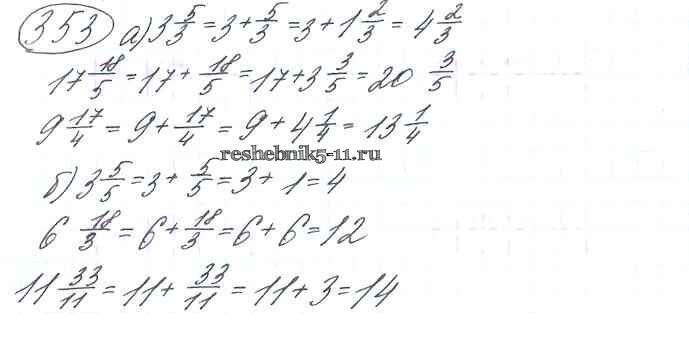 353 а) 3 5/3 = 3 + 5/3 = 3 + 1 2/3 = 4 2/3
17 18/5 = 17 + 18/5 = 17 + 3 3/5 = 20 3/5
9 17/4 = 9 + 17/4 = 9 + 4 1/4 = 13 1/4
reshebnik5-11.ru
б) 3 5/5 = 3 + 5/5 = 3 + 1 = 4
6 18/3 = 6 + 18/3 = 6 + 6 = 12
11 33/11 = 11 + 33/11 = 11 + 3 = 14